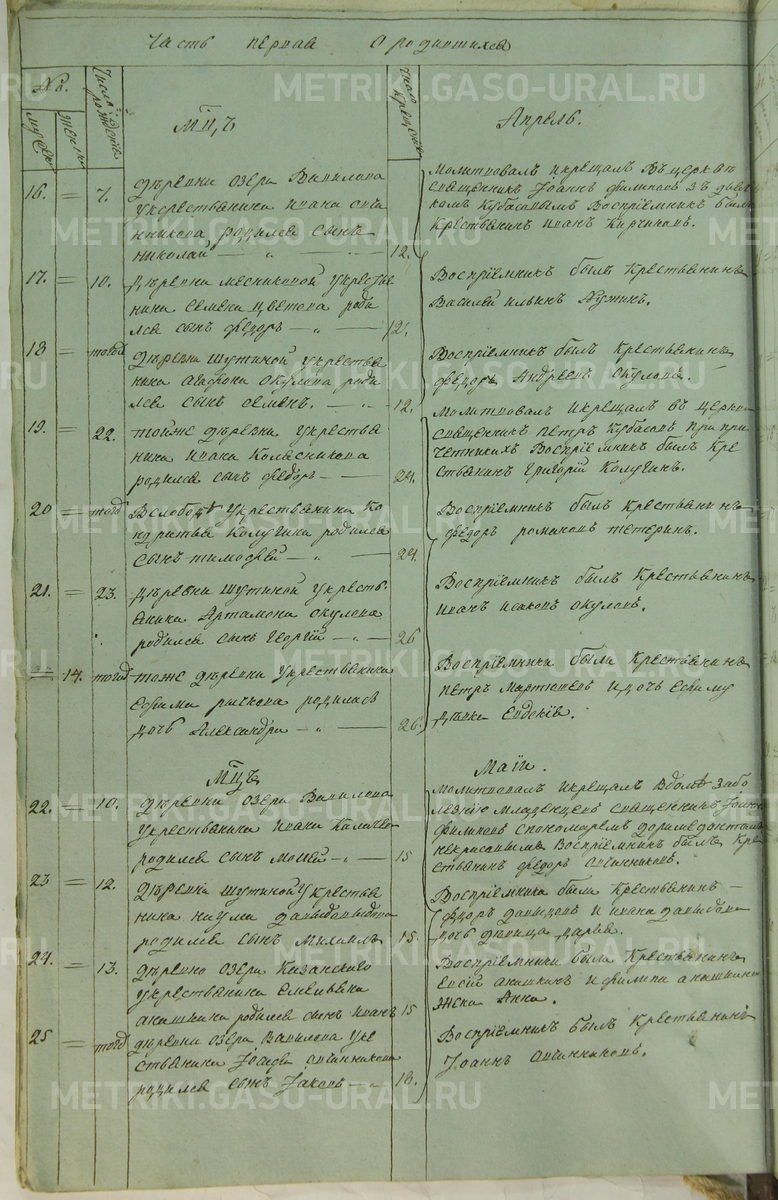 Часть первая О родившихся
№.
Число рождества
число крещения
муска
женска
Мц,ъ Апрель.
16. = 7. Деревни озера Вавилова
у крестьянина ивана овчи
нникова родился сынъ
николай — „ — 12.
Молитвовалъ и крещалъ Въ церкви
священникъ Іоаннъ филиповъ зъ дьяч
комъ Кубасовымъ Восприемникъ былъ
Крестьянинъ иванъ Кирчиковъ.
17. = 10. Деревни месниковой у крестья
нина семена цветова роди
лся сынъ федоръ — „ — 12.
Восприемникъ былъ Крестьянинъ
Василей ильинъ
18 = тогож Деревни шутиной у крестья
нина агафона окулова роди
лся сынъ семенъ. — „ — 12.
Восприемникъ былъ Крестьянинъ
федоръ Андреевъ окуловъ.
19. = 22. тойже деревни у крестья
нина ивана Колесникова
родился сынъ федоръ — „ — 24.
Молитвовалъ и крещалъ въ церкви
священникъ петръ Кубасовъ при при
четникихъ Восприемникъ былъ Кре
стьянинъ григорій Колугинъ.
20 = тогод Въ слободе у крестьянина Ко
ндратья Колугина родился
сынъ тимофей — „ — 24.
Восприемникъ былъ крестьянинъ
федоръ романовъ тетеринъ.
21. = 23. Деревни шутиной у кресть
янина Артамона окулова
родился сынъ георгій — „ — 26
Восприемникъ былъ Крестьянинъ
иванъ исаковъ окуловъ.
= 14. тогод тоже деревни у крестьянина
Ефима рычкова родилась
дочь Александра — „ — 26.
Восприемники были Крестьянинъ
петръ Мартюшевъ и дочь Ефиму
девка Евдокія.
Мцъ Маіи.
22. = 10. Деревни озера Вавилова
у крестьянина ивана Калаче
родился сынъ Мосей — „ — 15
Молитвовалъ и крещалъ в доме забо
лезнію младенцевъ священникъ Іоаннъ
филиповъ спономаремъ доримедонтомъ
некрасовымъ Восприемникъ былъ кре
стьянинъ федоръ овчинниковъ.
23 = 12. Деревни шутиной у крестья
нина наума давыдова
родился сынъ Михаилъ 15.
Восприемника были крестьянинъ —
федоръ давыдовъ и ивана давыдова
дочь девица дарья.
24. = 13. Деревни озера Казанскаго
у крестьянина емельяна
анашкина родился сынъ иванъ 15
Восприемники были Крестьянинъ
анашкинъ и филипа анашкина
жена Анна.
25 = тогод деревни озера Вавилова у кре
стьянина овчинникова
родился сынъ Іаковъ — „ 18.
Восприемникъ былъ Крестьянинъ
Іоаннъ овчинниковъ.
METRIKI.GASO-URAL.RU